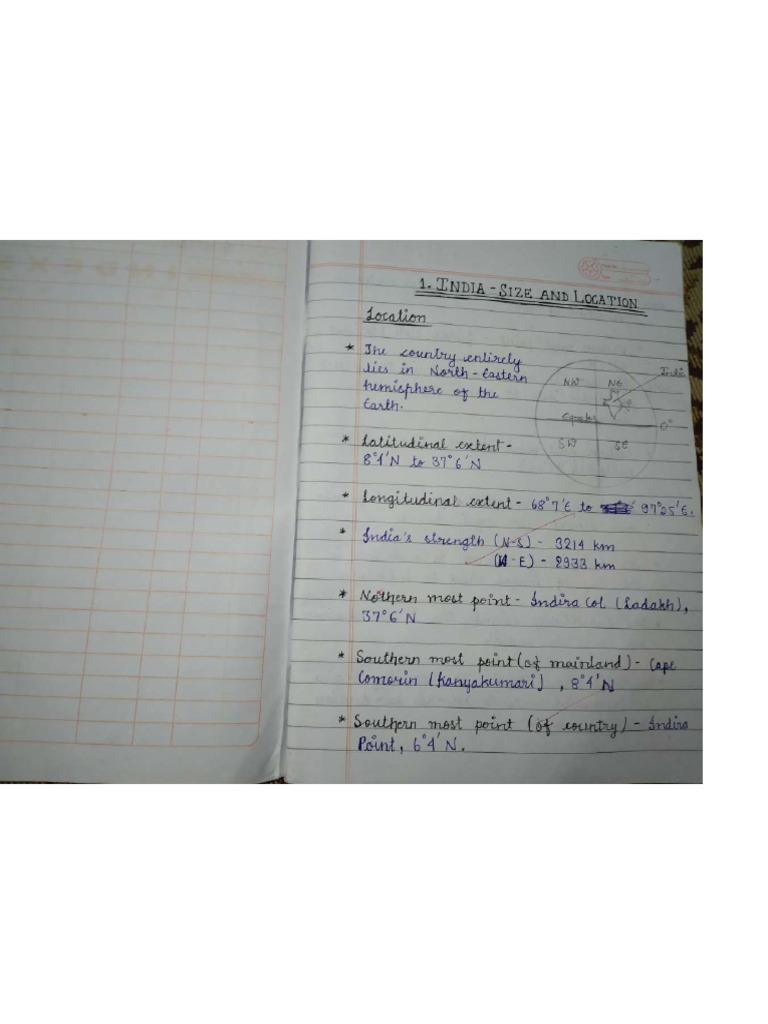 INDEX
1. INDIA - SIZE AND LOCATION
Location
* The country entirely
lies in North-Eastern
hemisphere of the
Earth.
NW NE
India
Equator 0°
SW SE
* Latitudinal extent -
8°4'N to 37°6'N
* Longitudinal extent - 68°7'E to 97°25'E.
* India's strength (N-S) - 3214 km
(W-E) - 2933 km
* Nothern most point - Indira Col (Ladakh),
37°6'N
* Southern most point (of mainland) - Cape
Comorin (Kanyakumari), 8°4'N
* Southern most point (of country) - Indira
Point, 6°4'N.